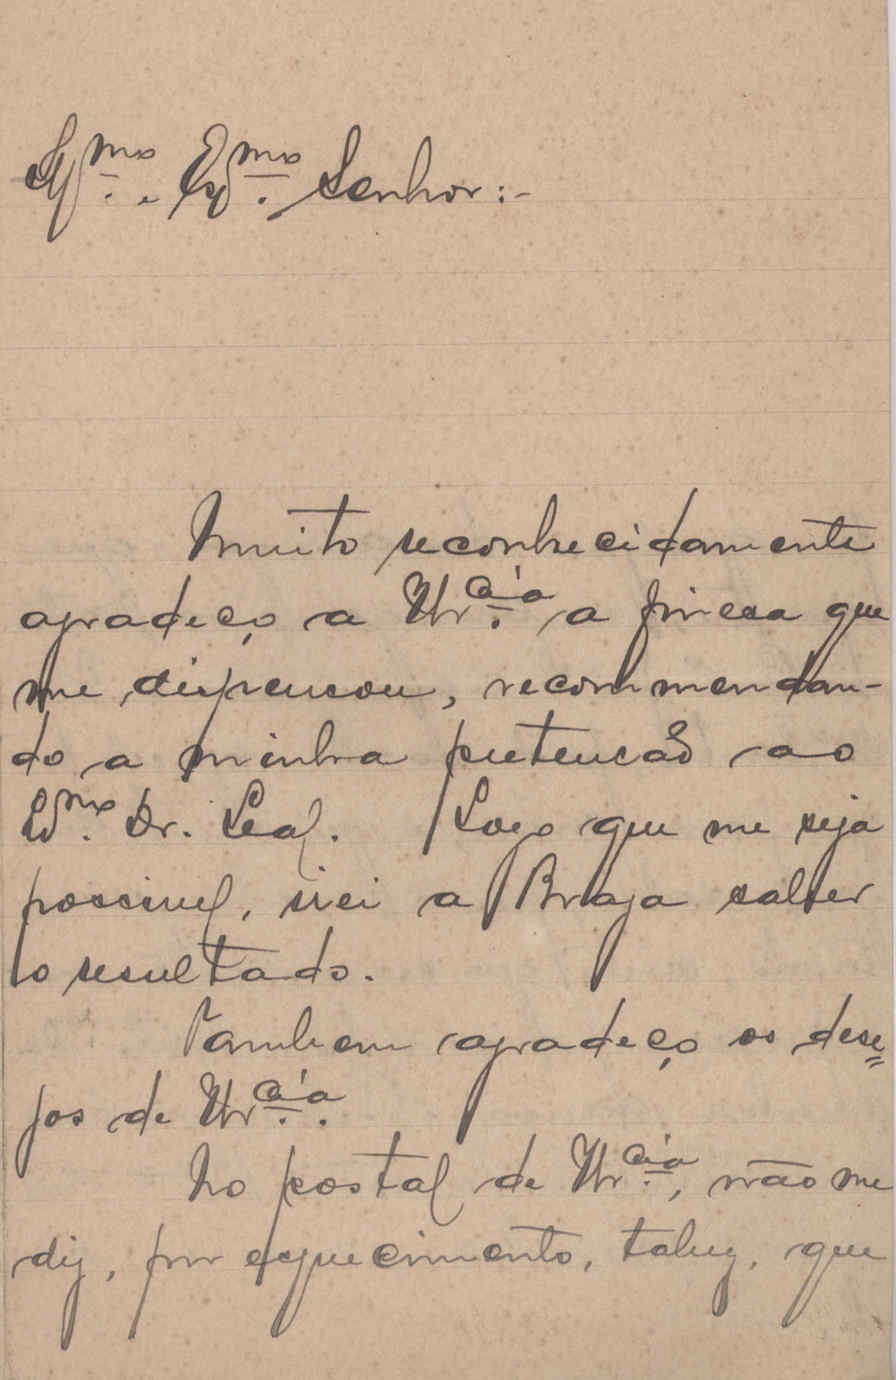 Ill.mo e Ex.mo Senhor:-
Muito reconhecidamente
agradeço a V.cia a finesa que
me dispensou, recommendan-
do a minha pretenção ao
Ex.mo Dr. Leal. Logo que me seja
possivel, irei a Braga saber
o resultado.
Tambem agradeço os dese=
jos de V.cia.
No postal de V.cia, não me
diz, por esquecimento, talvez, que